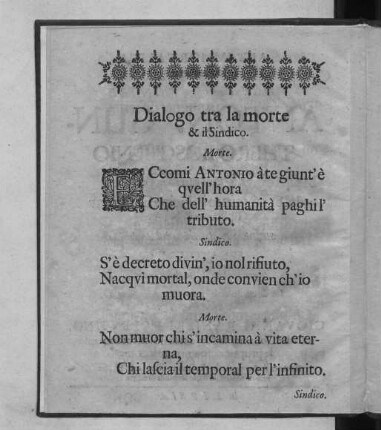 Dialogo tra la morte
& il Sindico.
Morte.
ECcomi ANTONIO à te giunt'è
qvell'hora
Che dell' humanità paghi l'
tributo.
Sindico.
S'è decreto divin', io nol rifiuto,
Nacqvi mortal, onde convien ch'io
muora.
Morte.
Non muor chi s'incamina à vita eter-
na,
Chi lascia il temporal per l'infinito.
Sindico.